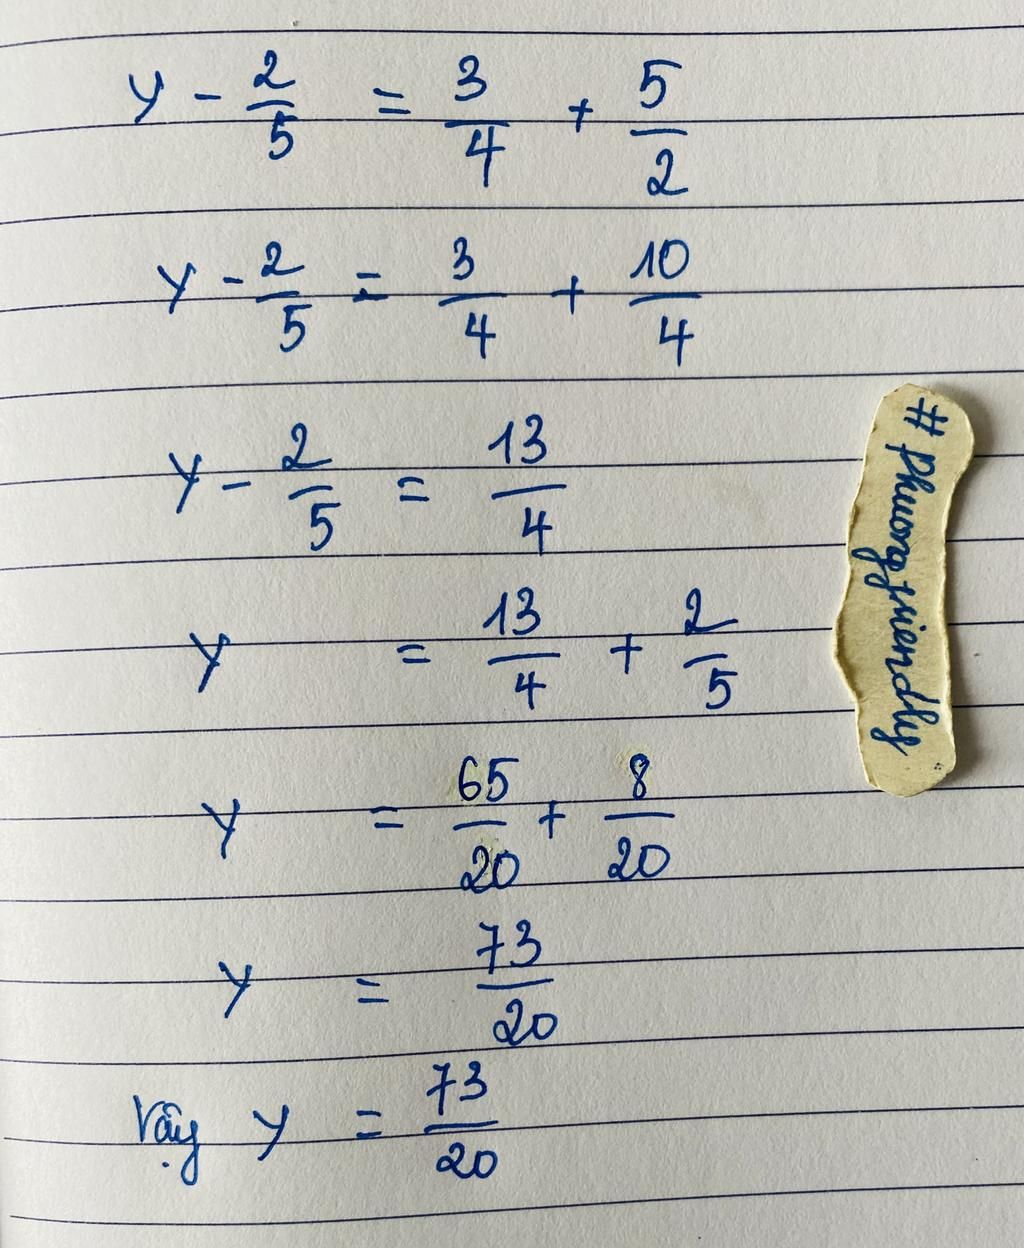 y - 2/5 = 3/4 + 5/2
y - 2/5 = 3/4 + 10/4
y - 2/5 = 13/4
y = 13/4 + 2/5
y = 65/20 + 8/20
y = 73/20
Vậy y = 73/20
# Phuongfriendly